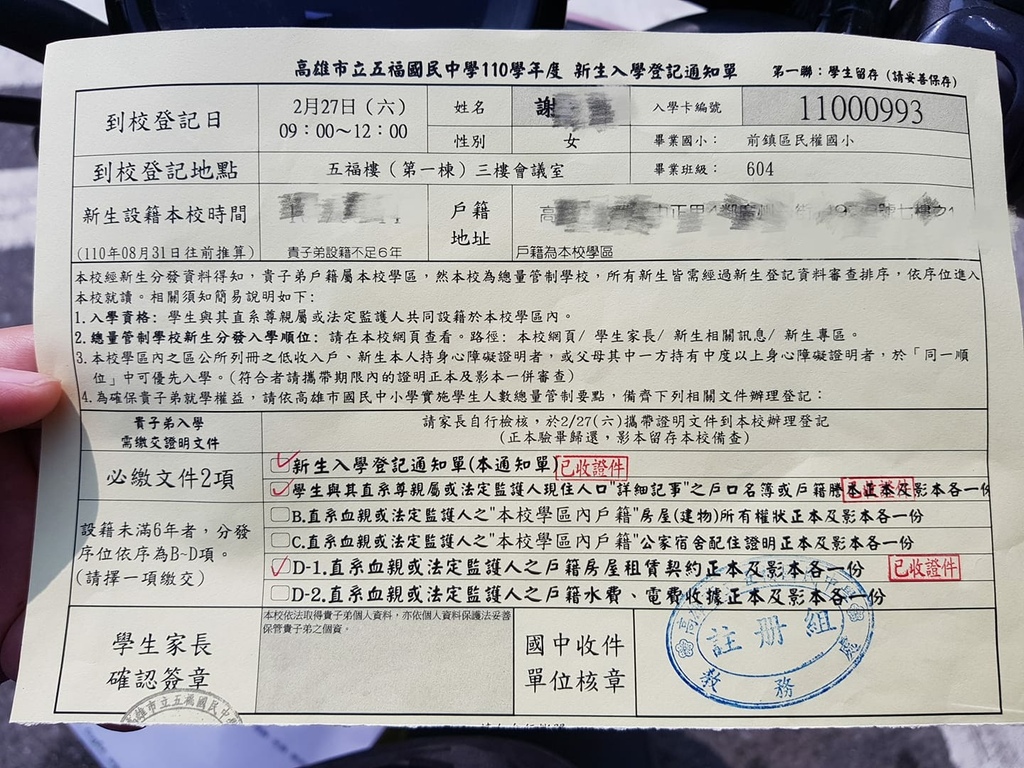 高雄市立五福國民中學110學年度 新生入學登記通知單 第一聯：學生留存 (請妥善保存)
到校登記日 2月27日（六） 09：00～12：00 姓名 謝 入學卡編號 11000993
性別 女 畢業國小： 前鎮區民權國小
到校登記地點 五福樓（第一棟）三樓會議室 畢業班級： 604
新生設籍本校時間 戶籍地址
(110年08月31日往前推算) 貴子弟設籍不足6年 戶籍為本校學區
本校經新生分發資料得知，貴子弟戶籍屬本校學區，然本校為總量管制學校，所有新生皆需經過新生登記資料審查排序，依序位進入
本校就讀。相關須知簡易說明如下：
1.入學資格：學生與其直系尊親屬或法定監護人共同設籍於本校學區內。
2.總量管制學校新生分發入學順位：請在本校網頁查看。路徑：本校網頁/ 學生家長/ 新生相關訊息/ 新生專區。
3.本校學區內之區公所列冊之低收入戶、新生本人持身心障礙證明者，或父母其中一方持有中度以上身心障礙證明者，於「同一順
位」中可優先入學。(符合者請攜帶期限內的證明正本及影本一併審查)
4.為確保貴子弟就學權益，請依高雄市國民中小學實施學生人數總量管制要點，備齊下列相關文件辦理登記：
貴子弟入學
需繳交證明文件
請家長自行檢核，於2/27(六)攜帶證明文件到本校辦理登記
(正本驗畢歸還，影本留存本校備查)
必繳文件2項
新生入學登記通知單(本通知單) 已收證件
學生與其直系尊親屬或法定監護人現住人口"詳細記事"之戶口名簿或戶籍謄本正本及影本各一份
設籍未滿6年者，分發
序位依序為B~D項。
(請擇一項繳交)
B.直系血親或法定監護人之"本校學區內戶籍"房屋(建物)所有權狀正本及影本各一份
C.直系血親或法定監護人之"本校學區內戶籍"公家宿舍配住證明正本及影本各一份
D-1.直系血親或法定監護人之戶籍房屋租賃契約正本及影本各一份 已收證件
D-2.直系血親或法定監護人之戶籍水費、電費收據正本及影本各一份
學生家長
確認簽章
本校依法取得貴子弟個人資料，亦依個人資料保護法妥善
保管貴子弟之個資。
國中收件
單位核章
註冊組
教務處
高雄市立五福國民中學